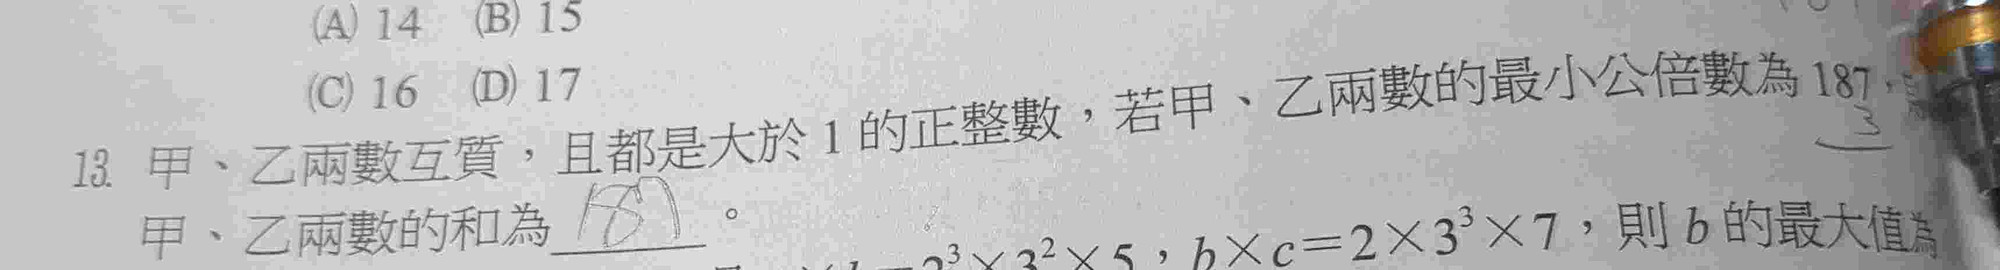 (A) 14 (B) 15
(C) 16 (D) 17
13. 甲、乙兩數互質，且都是大於 1 的正整數，若甲、乙兩數的最小公倍數為 187，
3
甲、乙兩數的和為 187 。
2³×3²×5，b×c=2×3³×7，則 b 的最大值為